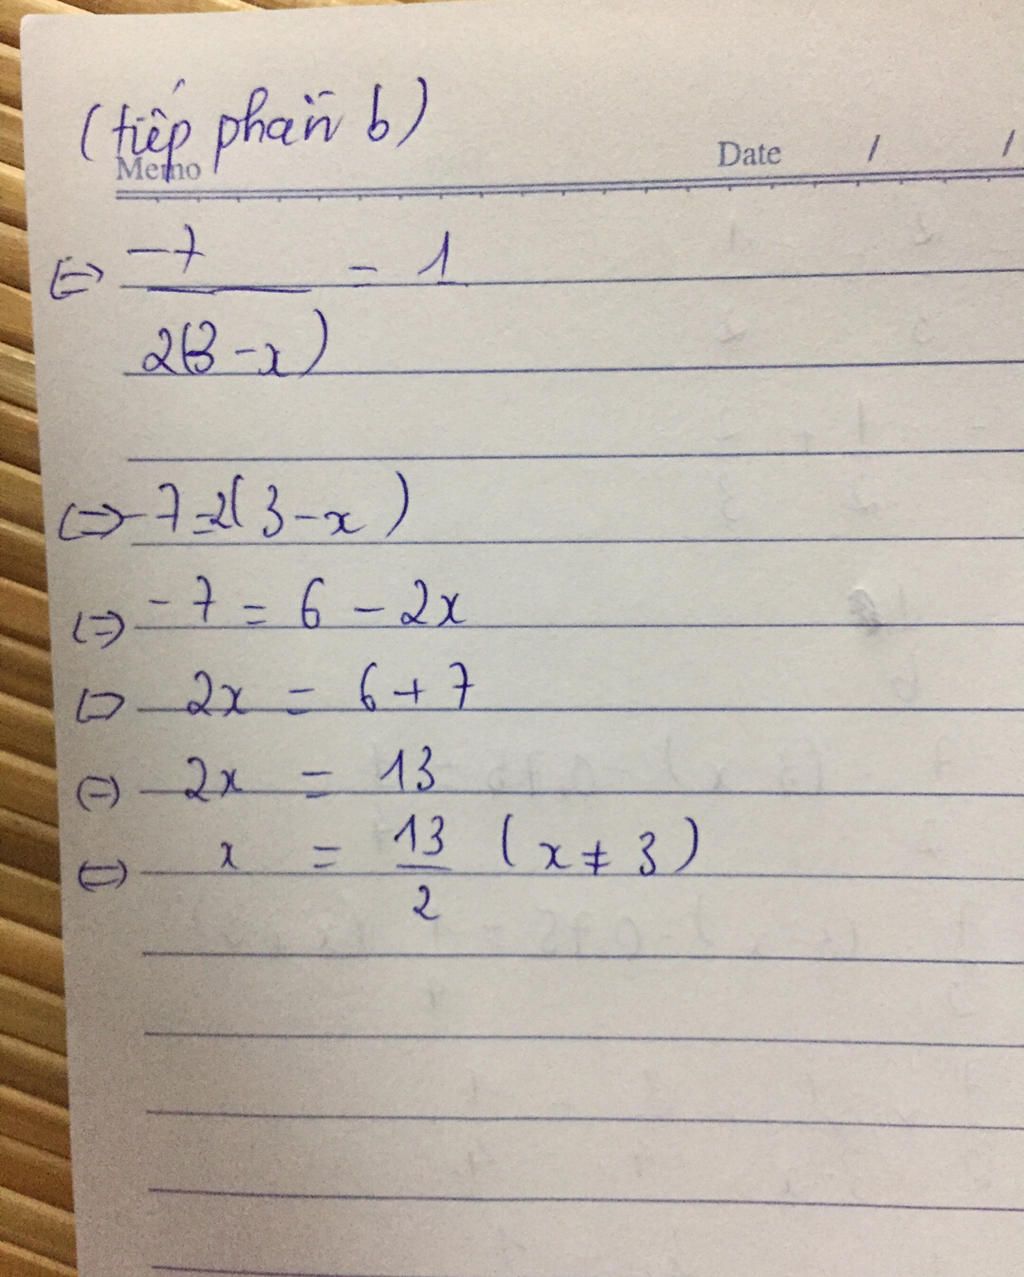 (tiếp phần b)
Memo Date / /
⇔ -7 / 2(3 - x) = 1
⇔ -7 = 2(3 - x)
⇔ -7 = 6 - 2x
⇔ 2x = 6 + 7
⇔ 2x = 13
⇔ x = 13/2 (x ≠ 3)